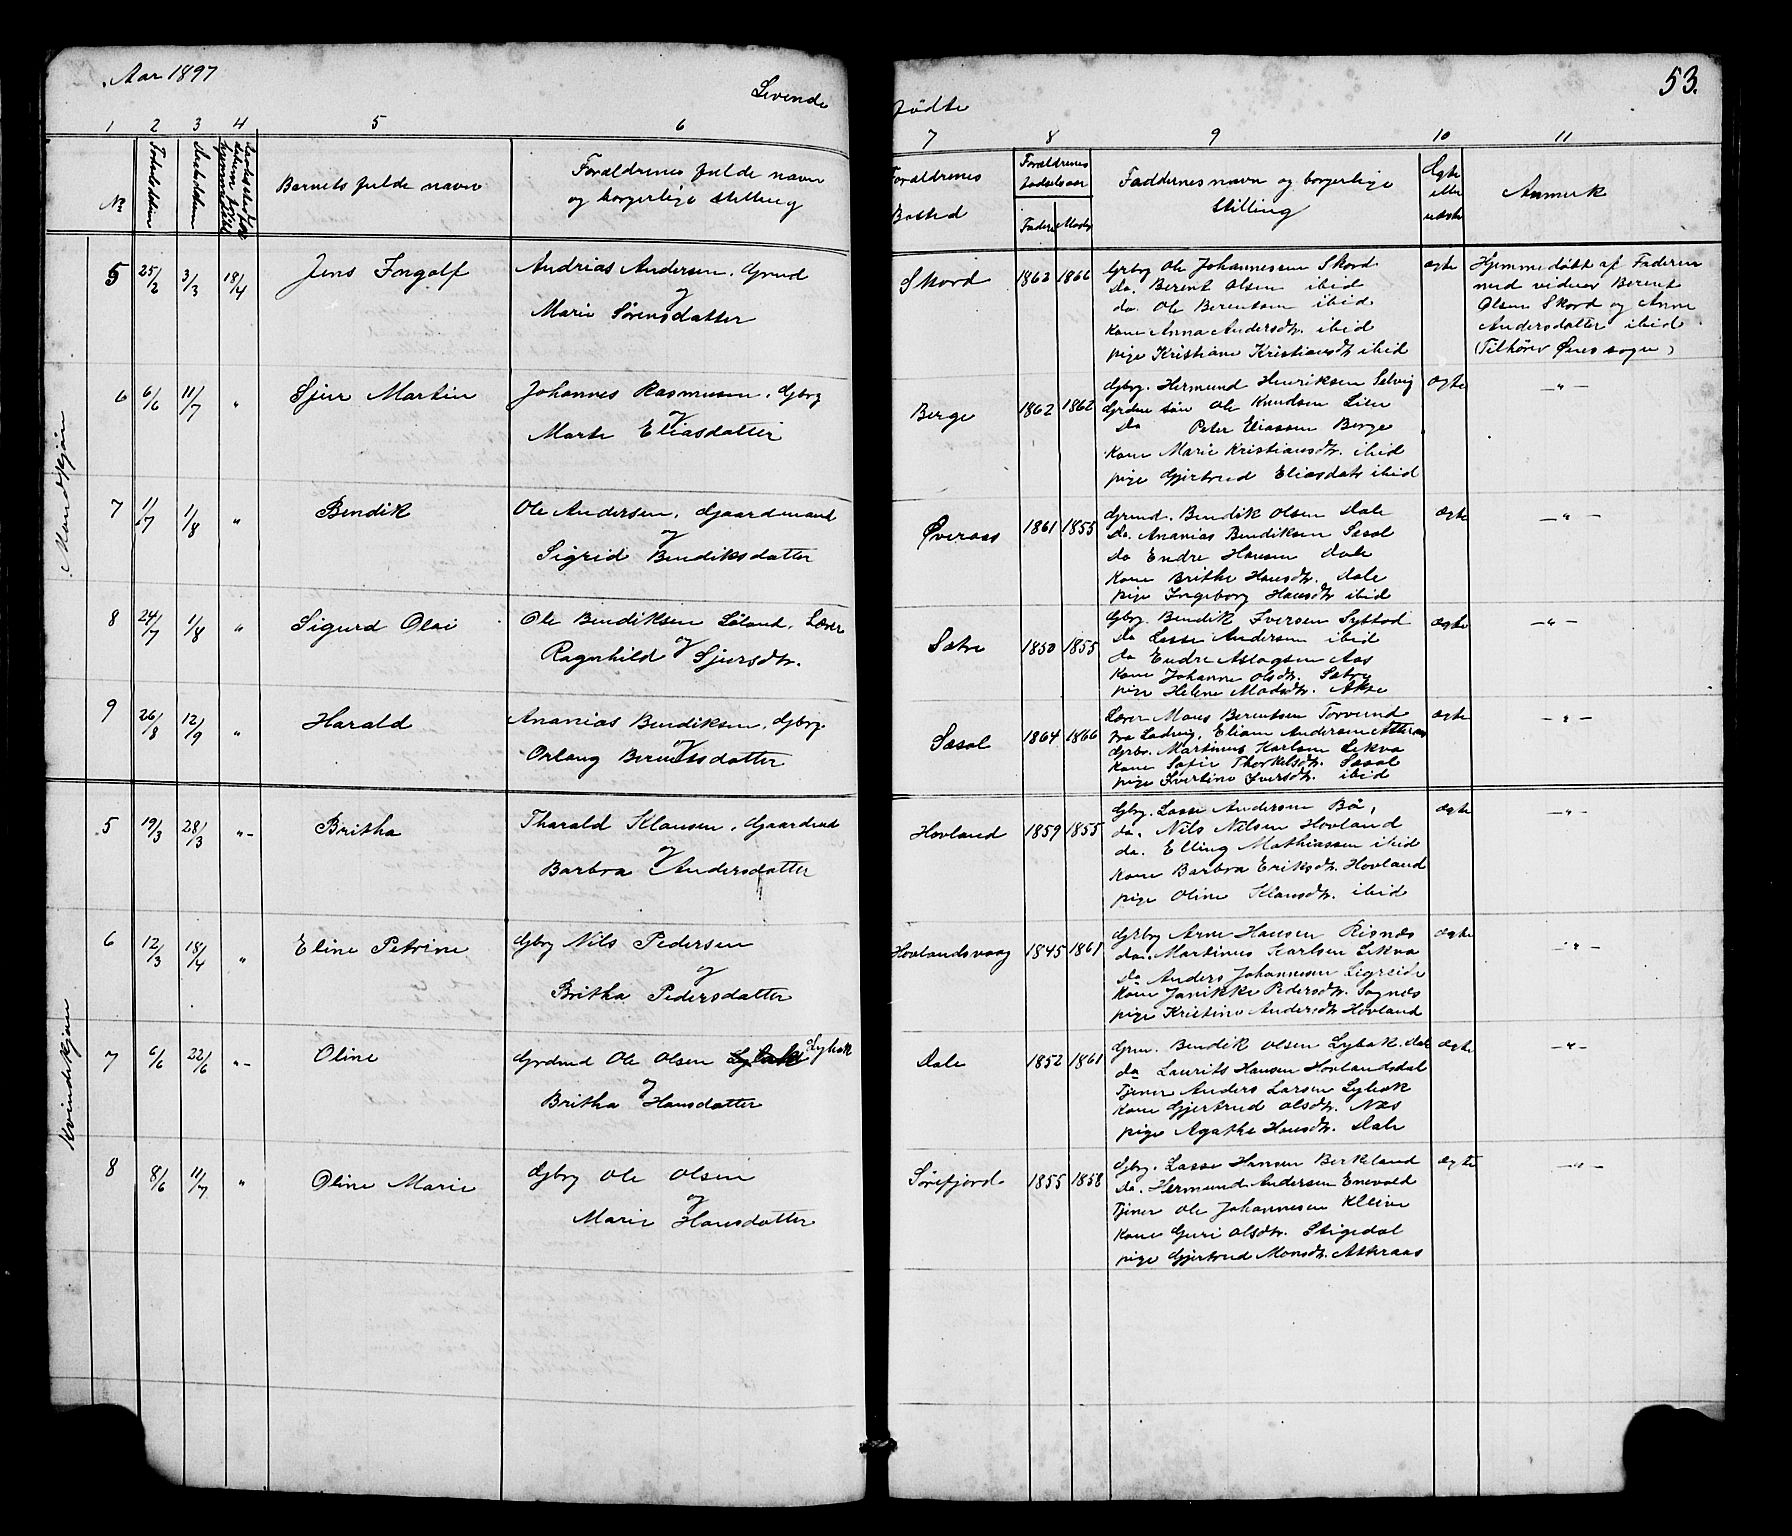 Aar 1897
Levende fødte
53.
1 2 3 4 5 6 7 8 9 10 11
No
Fødselsdatum
Daabsdatum
Barnets fulde navn
Forældrenes fulde navn
og borgerlige stilling
Forældrenes
Bosted
Forældrenes
fødselsaar
Faders Moders
Faddernes navn og borgerlige
stilling
Ægte
eller
uægte
Anmerk
Mandkjøn
5 25/2 3/3 18/4 Jens Ingolf
Andrias Andersen, Grmd
og
Marie Sørensdatter
Skord 1862 1866
Grbrg Ole Johannessen Skord
do. Berent Olsen ibid
do. Ole Berentsen ibid
Kone Anna Andersdtr. ibid
pige Kristiane Kristiansdtr ibid
ægte
Hjemmedøbt af Faderen
med vidner Berent
Olsen Skord og Anne
Andersdatter ibid
(Tilhører Øens sogn)
6 6/6 11/7 " Sjur Martin
Johannes Rasmusen, Gbrg
og
Marte Eliasdatter
Berge 1862 1862
Gbrg. Hermund Henriksen Selvig
Grdm søn Ole Knudsen Lien
do Peter Eliassen Berge
Kone Marie Kristiansdtr. ibid
pige Gjertrud Eliasdatr ibid
ægte
– " –
7 1/7 1/8 " Bendik
Ole Andersen, Gaardmand
og
Sigrid Bendiksdatter
Øveraas 1861 1855
Grmd. Bendik Olsen Dale
do. Ananias Bendiksen Sæsol
do Endre Hansen Dale
Kone Brithe Hansdtr. Dale
pige Ingeborg Hansdtr ibid
ægte
– " –
8 24/7 1/8 " Sigurd Olai
Ole Bendiksen Søland, Lærer
og
Ragnhild Sjursdtr.
Sætre 1850 1855
Gbrg. Bendik Iversen
do Lasse Andersen ibid
do Endre Aslagsen Aas
Kone Johanne Olsdtr. Sætre
pige Helene Madsdtr. Akse
ægte
– " –
9 26/8 12/9 " Harald
Ananias Bendiksen, Gbrg.
og
Orlaug Berentsdatter
Sæsol 1864 1866
Lærer Mons Berentsen Torvund
fra Ladvig, Eliam Andersen Atteraas
Grbr. Martinus Karlsen Lekva
Kone Sofie Thorkelsdtr. Sæsol
pige Ivertine Iversdtr. ibid
ægte
– " –
Kvindekjøn
5 19/3 28/3 "– Britha
Tharald Klausen, Gaardmd
og
Barbra Andersdatter
Hovland 1859 1855
Gbrg. Lasse Andersen Bø,
do. Nils Nilsen Hovland
do. Elling Mathiassen ibid
Kone Barbra Eriksdtr. Hovland
pige Oline Klausdtr. ibid
ægte
– " –
6 12/3 18/4 " Eline Petrine
Gbrg Nils Pedersen
og
Britha Pedersdatter
Hovlandsvaag 1845 1861
Grbrg Arne Hansen Risnæs
do. Martinus Karlsen Lekva
do Anders Johannesen Ligreide
Kone Janikke Pedersdtr. Sognæs
pige Kristine Andersdtr Hovland
ægte
– " –
7 6/6 22/6 "– Oline
Grdmd Ole Olsen Lybæk
og
Britha Hansdatter
Dale 1852 1861
Grm. Bendik Olsen Lybæk. Dale
do Laurits Hansen Hovlandsdal
Tjener Anders Larsen Lybæk
Kone Gjertrud Olsdtr. Næs
pige Agathe Hansdtr. Dale
ægte
– " –
8 8/6 11/7 " Oline Marie
Gbrg Ole Olsen
og
Marie Hansdatter
Sørefjord 1855 1858
Gbrg. Lasse Hansen Berkeland
do. Hermund Andersen Enevold
Tjener Ole Johannesen Kleive
Kone Guri Olsdtr. Stigedal
pige Gjertrud Monsdtr. Atteraas
ægte
– " –